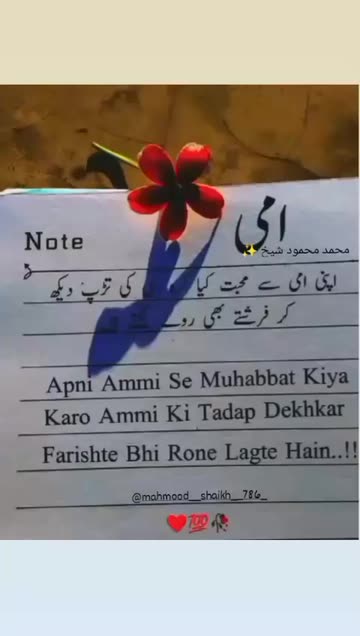 امی
Note
محمد محمود شیخ
اپنی امی سے محبت کیا کی تڑپ دیکھ
کر فرشتے بھی رونے
Apni Ammi Se Muhabbat Kiya
Karo Ammi Ki Tadap Dekhkar
Farishte Bhi Rone Lagte Hain..!!
@mahmood__shaikh__786_